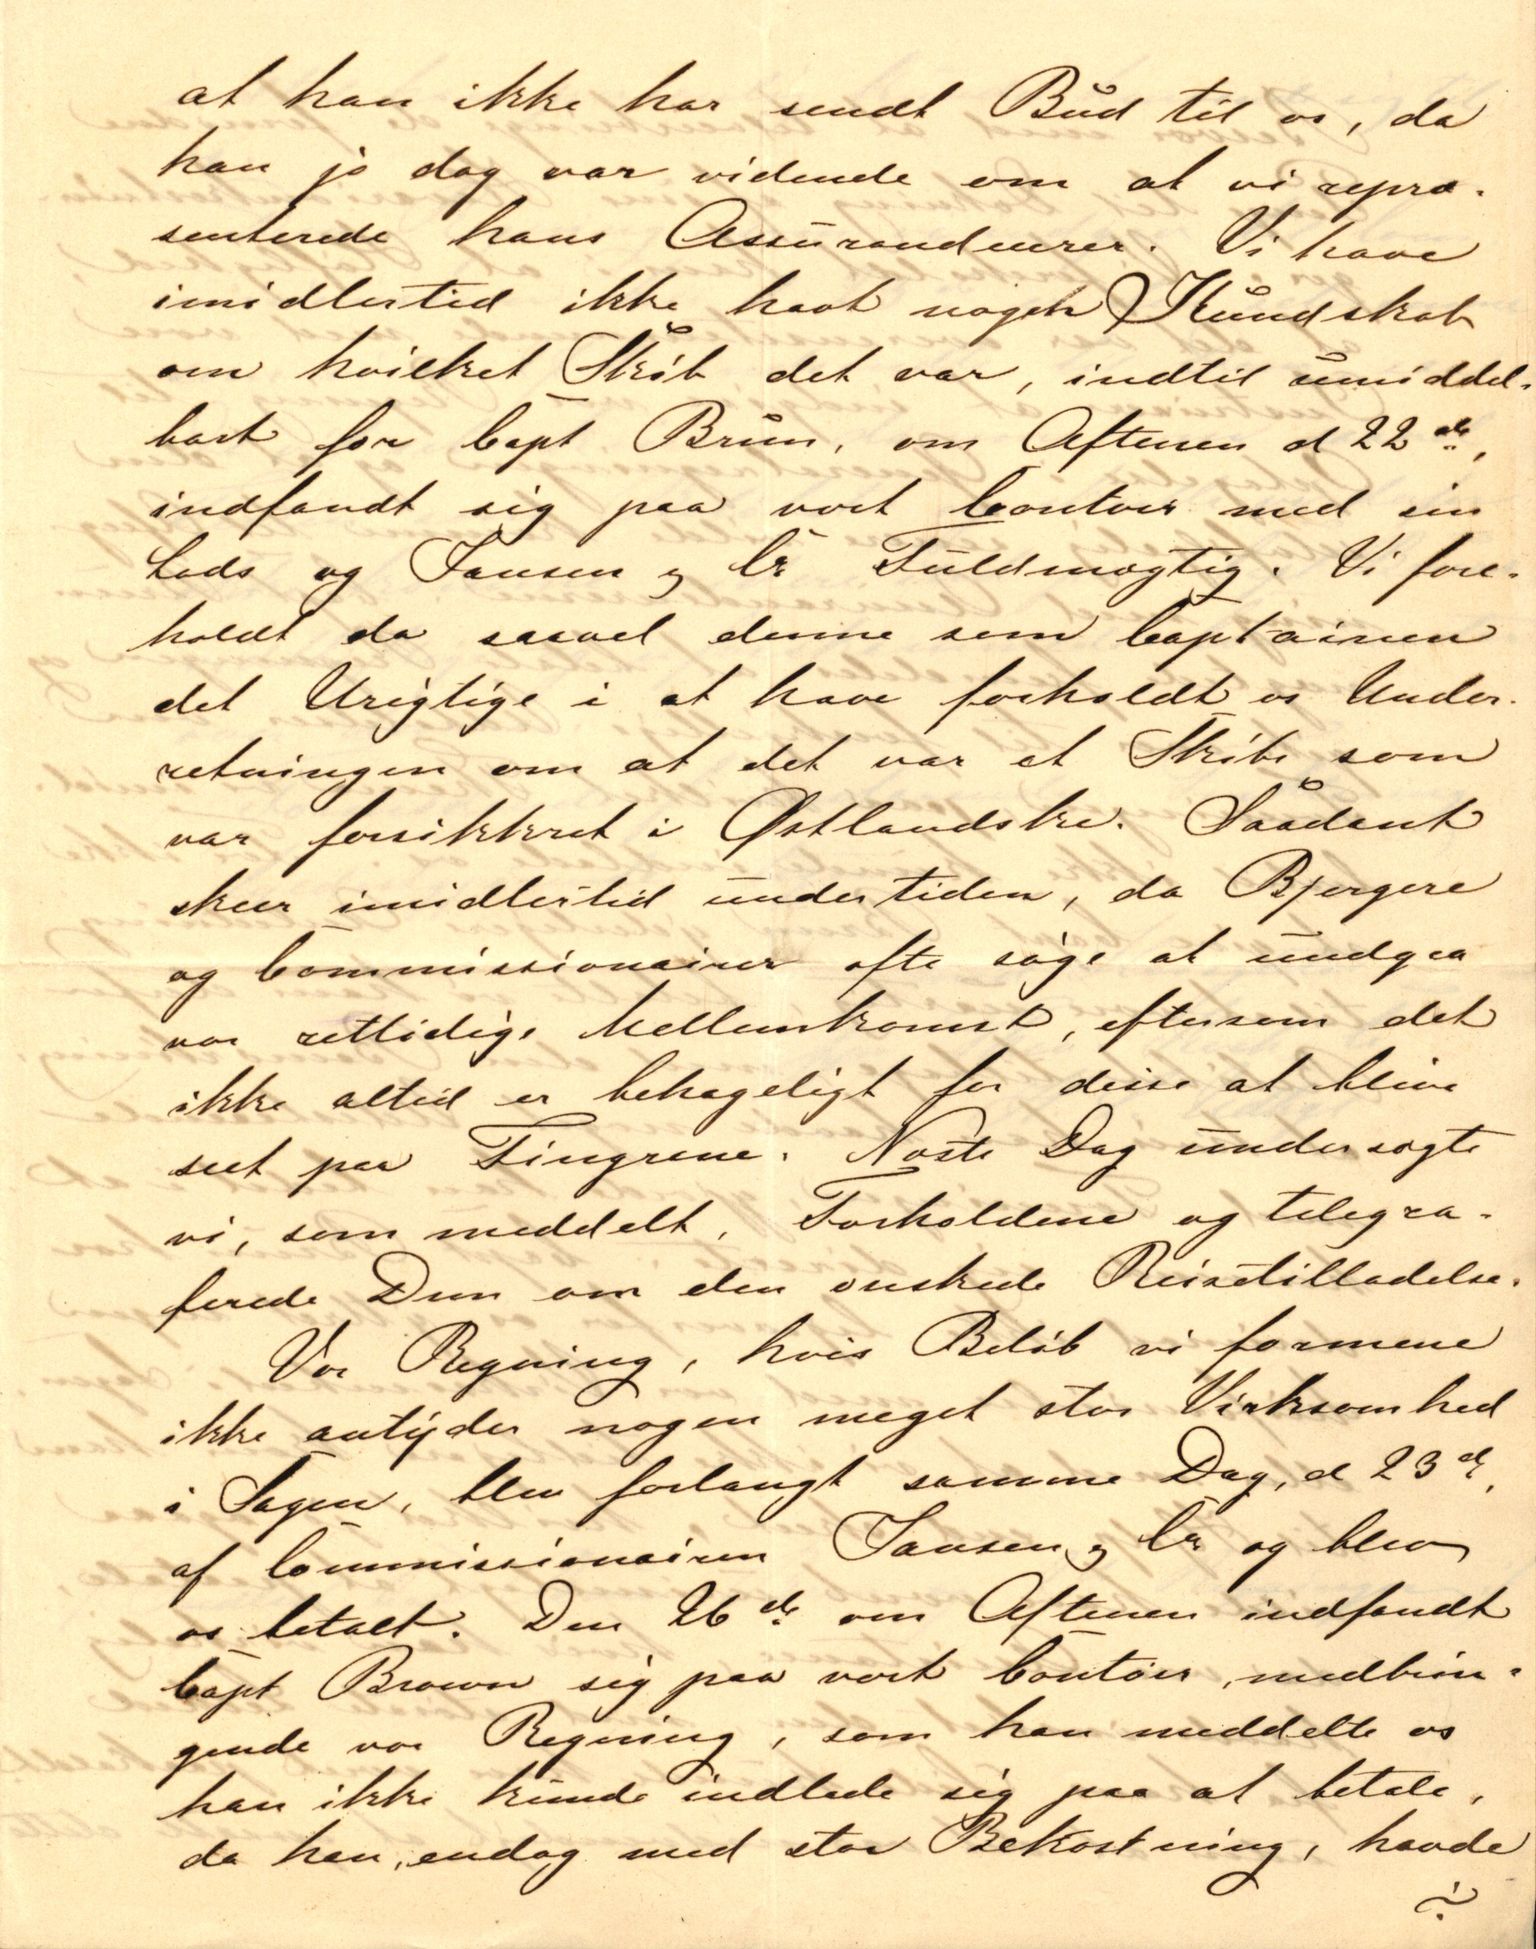 at han ikke har sendt Bud til os, da
han jo dog var vidende om at vi repræ-
senterede hans Assurandeurer. Vi have
imidlertid ikke havt nogen Kundskab
om hvilket Skib det var, indtil umiddel-
bart før Capt Brun, om Aftenen d 22de,
indfandt sig paa vort Contoir med sin
Lods og Jansen & Co Fuldmægtig. Vi fore-
holdt da saavel denne som Captainen
det Urigtige i at have forholdt os Under-
retningen om at det var et Skib som
var forsikkret i Østlandske. Saadant
skeer imidlertid undertiden, da Bjergere
og Commissionairer ofte søge at undgaa
vor rettidige Mellemkomst, eftersom det
ikke altid er behageligt for disse at blive
seet paa Fingrene. Næste Dag undersøgte
vi, som meddelt, Forholdene og telegra-
ferede Dem om den ønskede Reisetilladelse.
Vor Regning, hvis Beløb vi formene
ikke antyder nogen meget stor Virksomhed
i Sagen, blev forlangt samme Dag, d 23de,
af Commissionairen Jansen & Co og blev
os betalt. Den 26de om Aftenen indfandt
Capt Brown sig paa vort Contoir, medbrin-
gende vor Regning, som han meddelte os
han ikke kunde indlade sig paa at betale,
da han, endog med stor Bekostning, havde